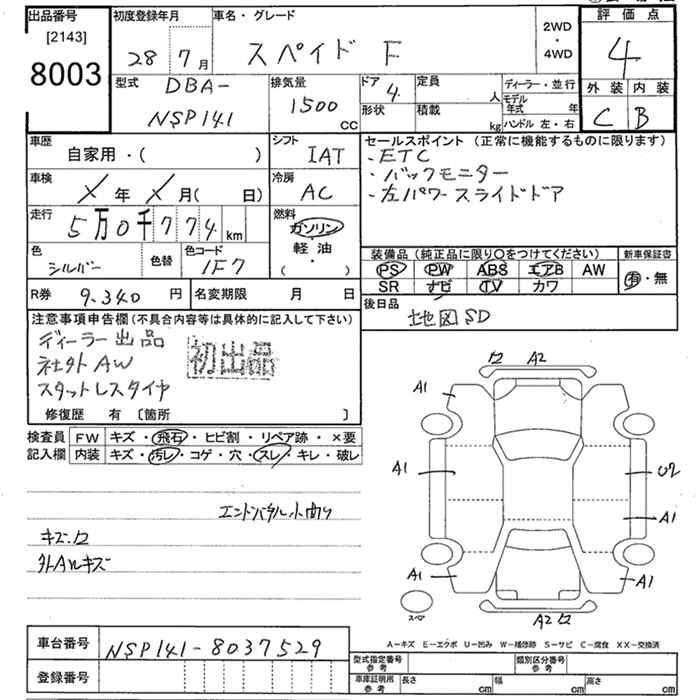 出品番号
[2143]
8003
初度登録年月
28年 7月
車名・グレード
スペイド F
2WD
・
4WD
評価点
4
外装 内装
C B
型式
DBA-
NSP141
排気量
1500
cc
ドア
4
形状
定員
人
積載
kg
ディーラー・並行
モデル年式 年
ハンドル 左・右
車歴
自家用・( )
シフト
IAT
車検
X 年 X 月( 日)
冷房
AC
走行
5万0千774
km
燃料
ガソリン
軽油
( )
色
シルバー
色替
色コード
1F7
R券 9,340 円
名変期限 月 日
セールスポイント (正常に機能するものに限ります)
・ETC
・バックモニター
・左パワースライドドア
装備品 (純正品に限り○をつけてください)
PS PW ABS エアB AW
SR ナビ TV カワ
新車保証書
有・無
後日品
地図SD
注意事項申告欄(不具合内容等は具体的に記入して下さい)
ディーラー出品
社外AW
スタットレスタイヤ
初出品
修復歴 有 〔箇所 〕
検査員
記入欄
FW キズ・飛石・ヒビ割・リペア跡・×要
内装 キズ・汚レ・コゲ・穴・スレ・キレ・破レ
エンドパネル小曲り
キズ・凹
外AWキズ
A1
A2
A1
A1
U2
A1
A1
A1
A2
スペア
A−キズ E−エクボ U−凹み W−補修跡 S−サビ C−腐食 XX−交換済
車台番号
NSP141-8037529
登録番号
型式指定番号
参考
類別区分番号
参考
車庫証明用
参考
長さ cm
幅 cm
高さ cm